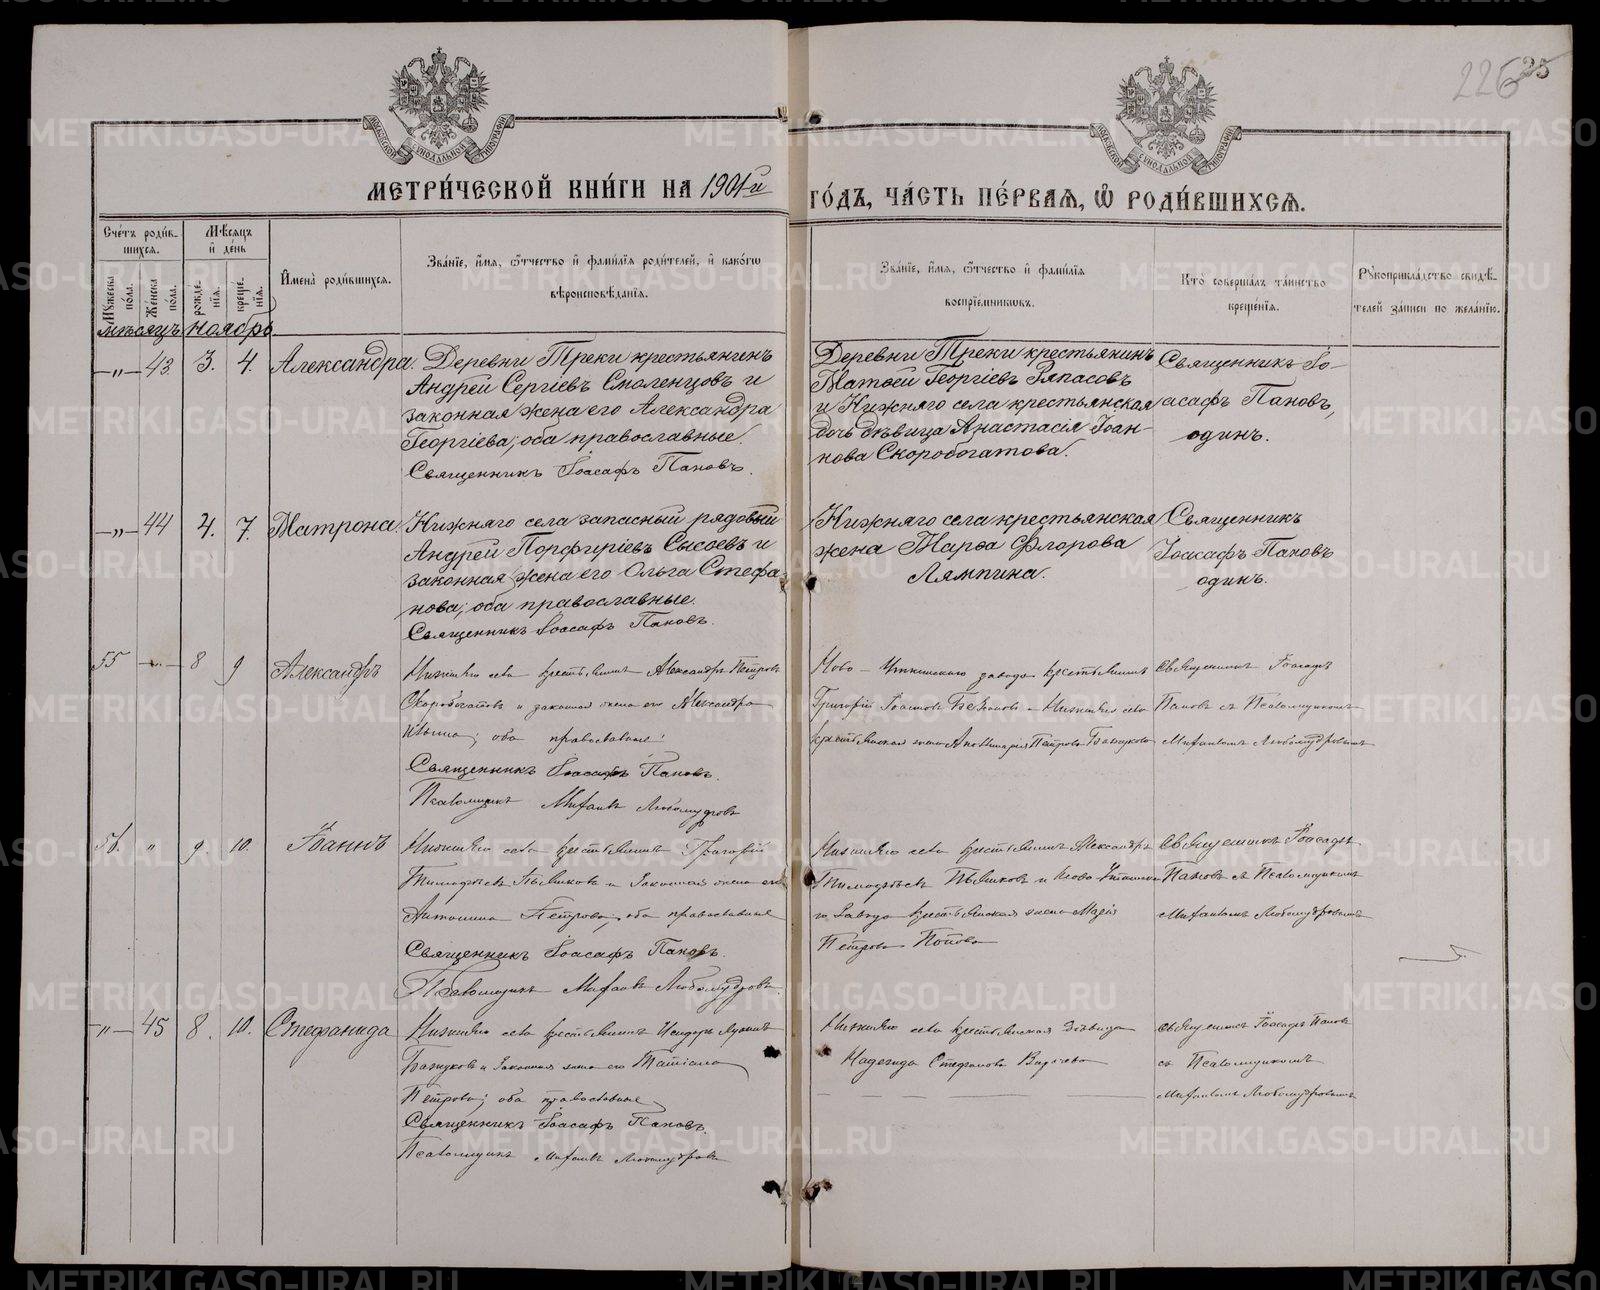 226 25
МОСКОВСКОЙ СѴНОДАЛЬНОЙ ТИПОГРАФІИ
МОСКОВСКОЙ СѴНОДАЛЬНОЙ ТИПОГРАФІИ
МЕТРИ́ЧЕСКОЙ КНИ́ГИ НА 1901й ГО́ДЪ, ЧА́СТЬ ПЕ́РВАѦ, Ѽ РОДИ́ВШИХСѦ.
Сче́тъ роди́в-
шихсѧ.
Мꙋ́жеска по́ла.
Же́нска по́ла.
Мѣ́сѧцъ
и҆ де́нь
рожде́нїѧ.
креще́нїѧ.
И҆мена̀ роди́вшихсѧ.
Зва́нїе, и҆́мѧ, ѻ҆́тчество и҆ фами́лїѧ роди́телей, и҆ како́гѡ
вѣроисповѣ́данїѧ.
Зва́нїе, и҆́мѧ, ѻ҆́тчество и҆ фами́лїѧ
воспрїе́мникѡвъ.
Кто̀ соверша́лъ та́инство
креще́нїѧ.
Рꙋкоприкла́дство свидѣ́-
телей за́писи по жела́нїю.
мѣсяцъ ноябрь
—„— 43 3. 4. Александра.
Деревни Треки крестьянинъ
Андрей Сергіевъ Смоленцовъ и
законная жена его Александра
Георгіева; оба православные.
Священникъ Іоасафъ Пановъ.
Деревни Треки крестьянинъ
Матѳей Георгіевъ Ряпасовъ
и Нижняго села крестьянская
дочь дѣвица Анастасія Іоан-
нова Скоробогатова.
Священникъ Іо-
асафъ Пановъ,
одинъ.
—„— 44 4. 7. Матрона.
Нижняго села запасный рядовый
Андрей Порфиріевъ Сысоевъ и
законная жена его Ольга Стефа
нова; оба православные.
Священникъ Іоасафъ Пановъ.
Нижняго села крестьянская
жена Марѳа Флорова
Лямпина.
Священникъ
Іоасафъ Пановъ
одинъ.
55 —„— 8 9 Александръ
Нижняго села крестьянинъ Александръ Петровъ
Скоробогатовъ и законная жена его Александра
Ильина; оба православные.
Священникъ Іоасафъ Пановъ.
Псаломщикъ Михаилъ Любомудровъ
Ново-Уткинскаго завода крестьянинъ
Григорій Іоанновъ и Нижняго села
крестьянская жена Петрова
Священникъ Іоасафъ
Пановъ съ Псаломщикомъ
Михаиломъ Любомудровымъ
56. „ 9 10. Іоаннъ
Нижняго села крестьянинъ Григорій
Тимофѣевъ Пьянковъ и законная жена его
Антонина Петрова; оба православные
Священникъ Іоасафъ Пановъ.
Псаломщикъ Михаилъ Любомудровъ.
Нижняго села крестьянинъ Александръ
Тимофѣевъ Пьянковъ и Ново-Уткинска
го завода крестьянская жена Марія
Петрова Попова
Священникъ Іоасафъ
Пановъ съ Псаломщикомъ
Михаиломъ Любомудровымъ
—„— 45 8. 10. Стефанида
Нижняго села крестьянинъ Исидоръ
Бажуковъ и законная жена его Татіана
Петрова; оба православные
Священникъ Іоасафъ Пановъ.
Псаломщикъ Михаилъ Любомудровъ
Нижняго села крестьянская дѣвица
Надежда Стефанова
Священникъ Іоасафъ Пановъ
съ Псаломщикомъ
Михаиломъ Любомудровымъ
METRIKI.GASO-URAL.RU